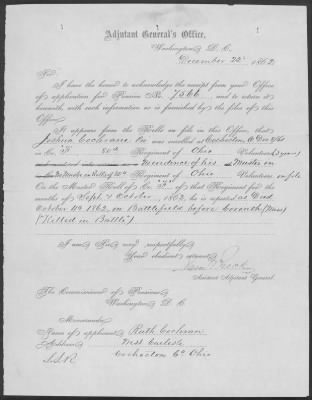 Adjutant General's Office,
Washington, D. C.
December 22d 1862
Sir:
I have the honor to acknowledge the receipt from your Office
of application for Pension No. 7566, and to return it
herewith, with such information as is furnished by the files of this
Office.
It appears from the Rolls on file in this Office, that
Joshua Cochrane Co. was enrolled at Coshocton, O. Dec
in Co. 80th Regiment of Ohio Volunteers
and Evidence of his Muster in
Regiment of Ohio Volunteers, on file
On the Muster Roll of Co. of that Regiment for the
months of Sept. & October, 1862, he is reported as Died
October 4th 1862 on Battlefield before Corinth (Miss)
(Killed in Battle)
I am, Sir, very respectfully,
Your obedient servant,
Assistant Adjutant General.
The Commissioner of Pensions,
Washington, D. C.
Memoranda:
Name of applicant, Ruth Cochran
Address, West Carlisle
Coshocton Co. Ohio